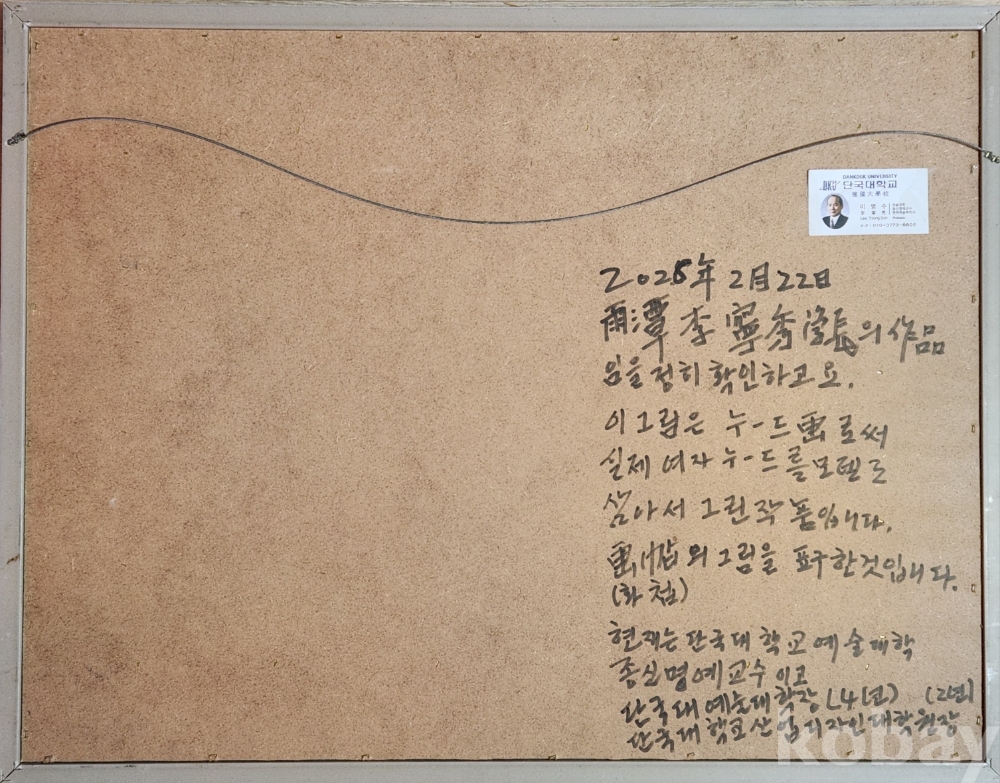 DANKOOK UNIVERSITY
DKU 단국대학교
檀國大學校
2025年 2月 22日
雨潭 李寧秀 의 作品
임을 정히 확인하고요.
이그림은 누-드畫로써
실제 여자 누-드를 모델로
삼아서 그린 작품입니다.
畫帖의 그림을 표구한것입니다.
(화첩)
현재는 단국대학교예술대학
종신명예교수이고
단국대예술대학장(4년) (2년)
단국대학교산업디자인대학원장
kobay